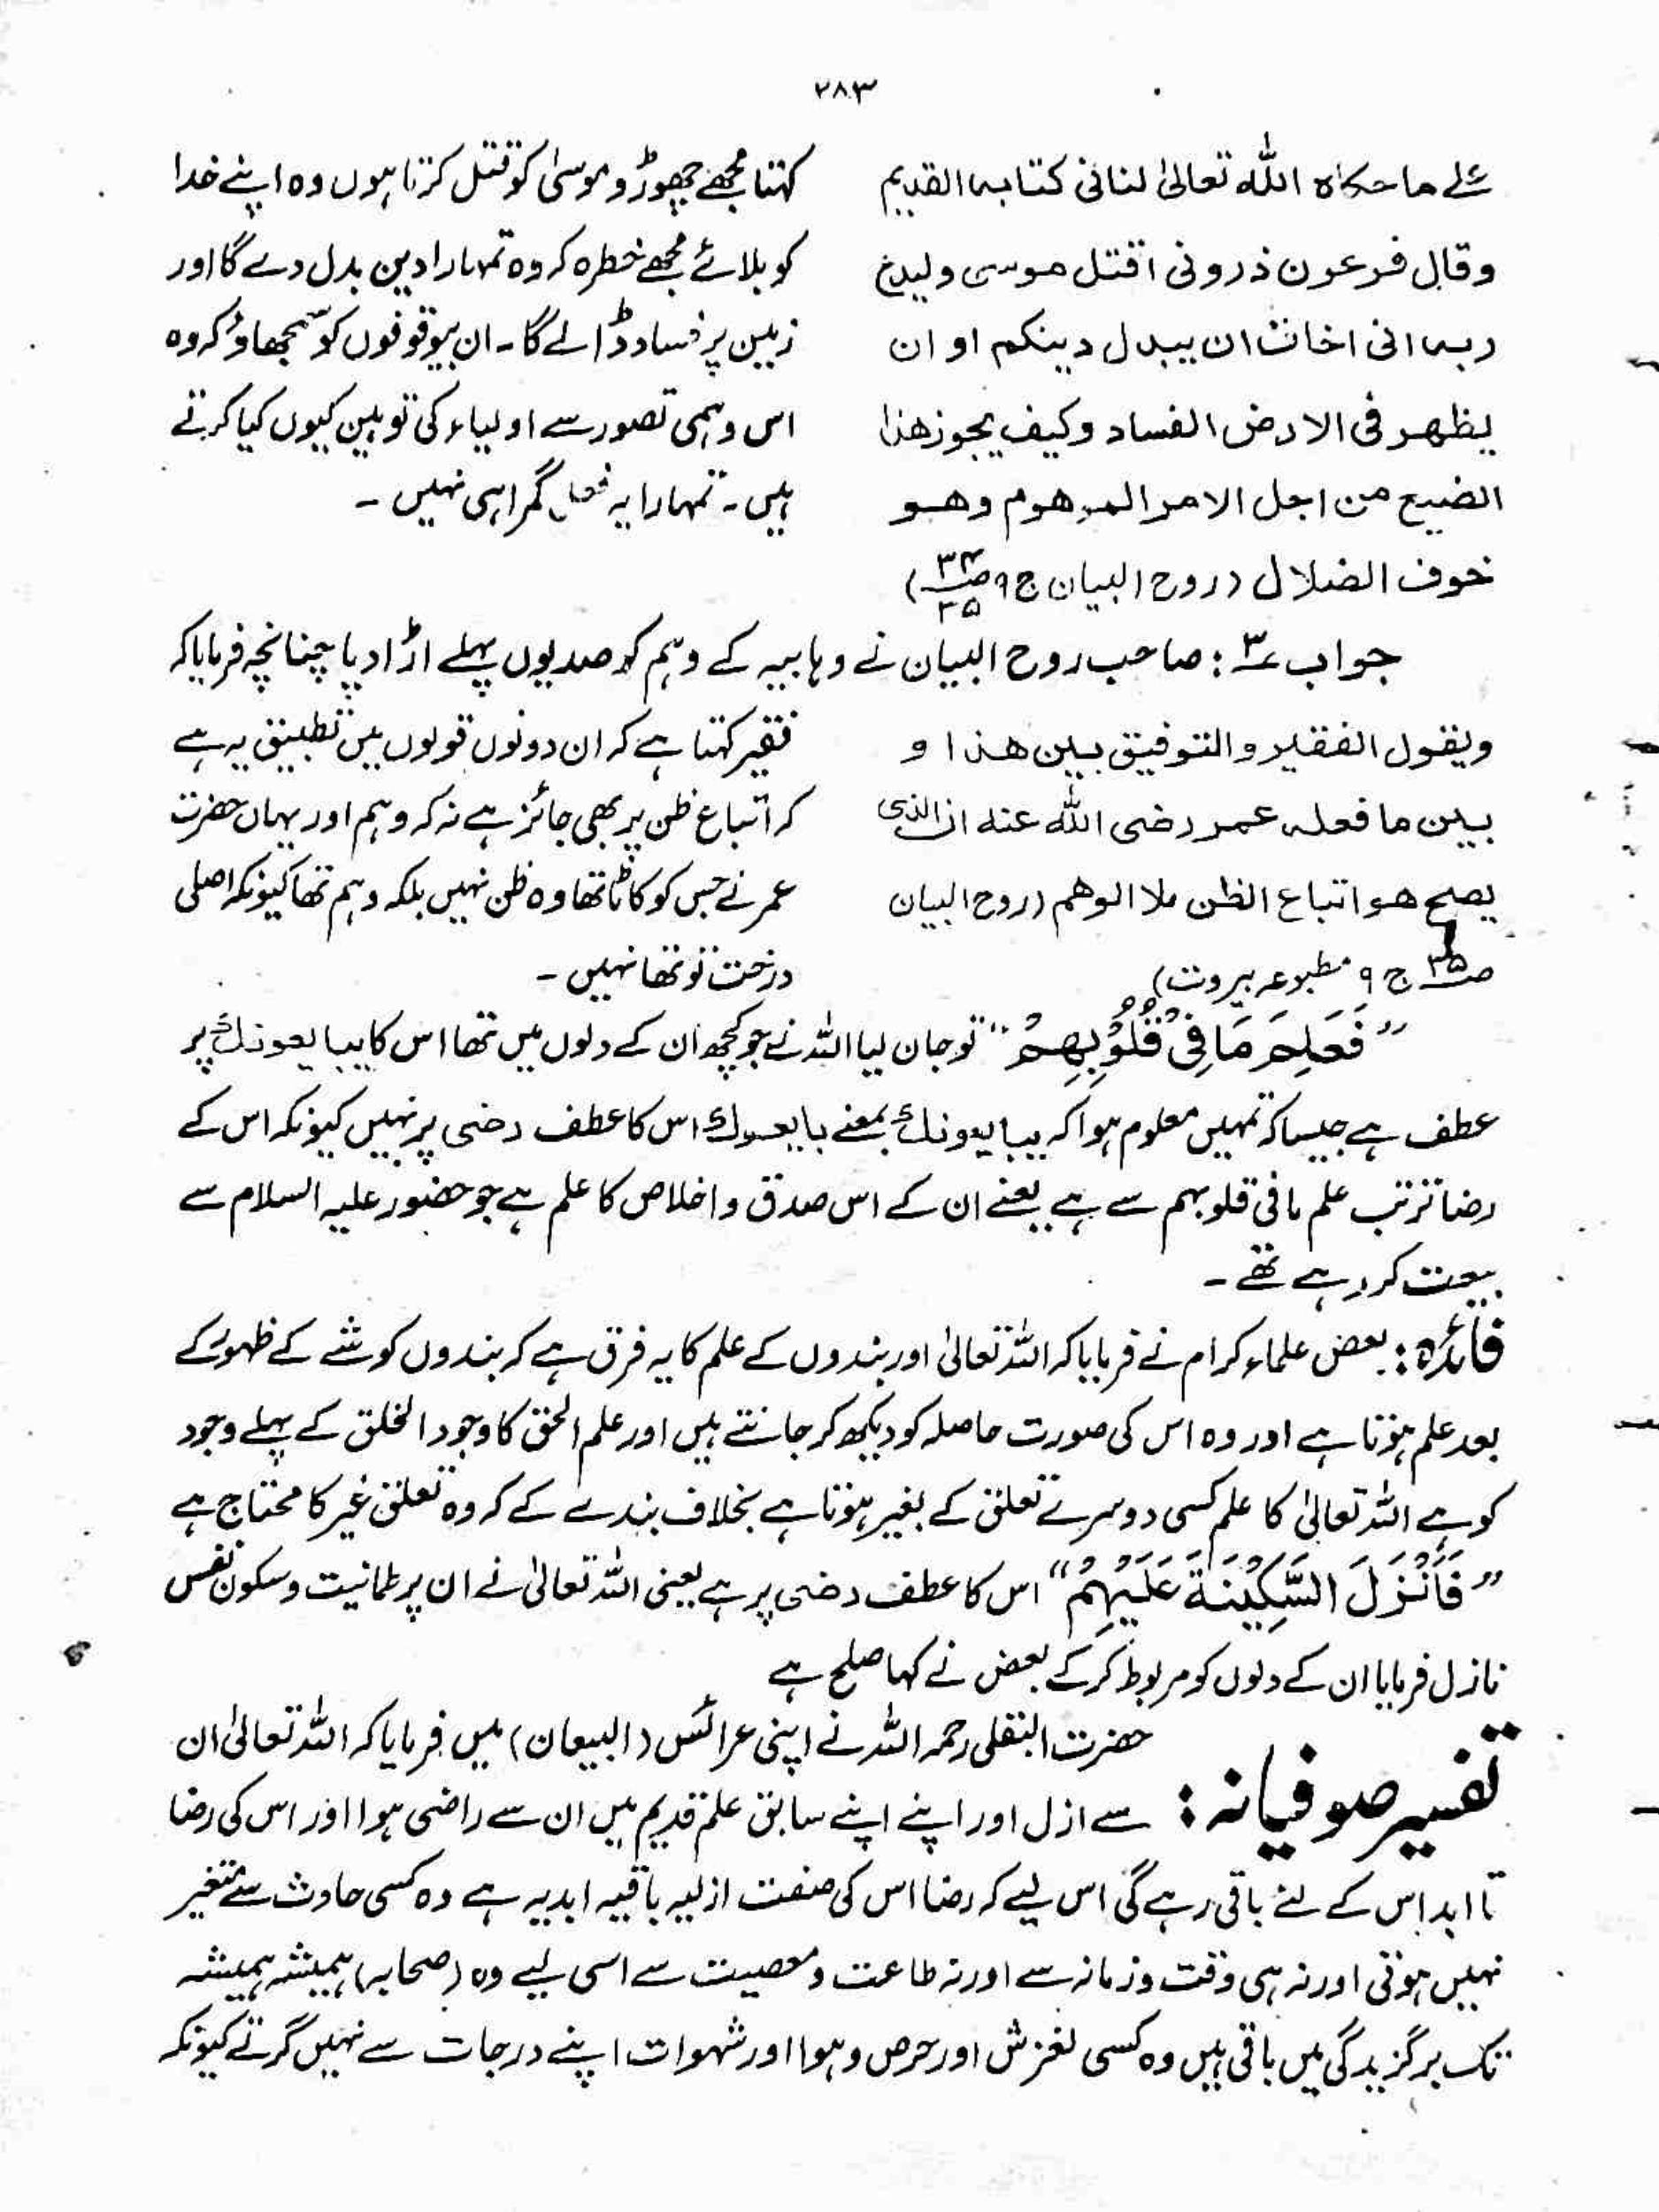 ۲۸۳
علے ماحکاہ اللہ تعالیٰ لنافی کتابہ القدیم
وقال فرعون ذرونی اقتل موسی ولیدع
ربہ انی اخاف ان یبدل دینکم او ان
یظهر فی الارض الفساد وکیف یجوز هذا
الضیع من اجل الامر الموهوم وهو
خوف الضلال (روح البیان ج۹ ص ۳۴ ۳۵)
کہتا مجھے چھوڑو موسیٰ کو قتل کرتا ہوں وہ اپنے خدا
کو بلائے مجھے خطرہ کہ وہ تمہارا دین بدل دے گا اور
زمین پر فساد ڈالے گا۔ ان بیوقوفوں کو سمجھاؤ کہ وہ
اس وہمی تصور سے اولیاء کی توہین کیوں کیا کرتے
ہیں۔ تمہارا یہ فعل گمراہی نہیں ۔
جواب ۳؎ : صاحب روح البیان نے وہابیہ کے وہم کو صدیوں پہلے اڑا دیا چنانچہ فرمایا کہ
ویقول الفقیر والتوفیق بین هذا و
بین ما فعلہ عمر رضی اللہ عنہ ان الذی
یصح هو اتباع الظن ملا الوهم (روح البیان
ص۳۵ ج ۹ مطبوعہ بیروت)
فقیر کہتا ہے کہ ان دونوں قولوں میں تطبیق یہ ہے
کہ اتباع ظن پر بھی جائز ہے نہ کہ وہم اور یہاں حضرت
عمر نے جس کو کاٹا تھا وہ ظن نہیں بلکہ وہم تھا کیونکہ اصلی
درخت تو تھا نہیں ۔
”فَعَلِمَ مَا فِیْ قُلُوْبِهِمْ“ تو جان لیا اللہ نے جو کچھ ان کے دلوں میں تھا اس کا یبایعونك پر
عطف ہے جیسا کہ تمہیں معلوم ہوا کہ یبایعونك بمعنے بایعوك اس کا عطف رضی پر نہیں کیونکہ اس کے
رضا ترتب علم مافی قلوبہم سے ہے یعنے ان کے اس صدق و اخلاص کا علم ہے جو حضور علیہ السلام سے
بیعت کر رہے تھے ۔
فائدہ : بعض علماء کرام نے فرمایا کہ اللہ تعالیٰ اور بندوں کے علم کا یہ فرق ہے کہ بندوں کو شے کے ظہور کے
بعد علم ہوتا ہے اور وہ اس کی صورت حاصلہ کو دیکھ کر جانتے ہیں اور علم الحق کا وجود الخلق کے پہلے وجود
کو ہے اللہ تعالیٰ کا علم کسی دوسرے تعلق کے بغیر ہوتا ہے بخلاف بندے کے کہ وہ تعلق غیر کا محتاج ہے
”فَاَنْزَلَ السَّكِیْنَةَ عَلَیْهِمْ“ اس کا عطف رضی پر ہے یعنی اللہ تعالیٰ نے ان پر طمانیت و سکون نفس
نازل فرمایا ان کے دلوں کو مربوط کرکے بعض نے کہا صلح ہے
تفسیر صوفیانہ : حضرت البقلی رحمہ اللہ نے اپنی عرائس (البیعان) میں فرمایا کہ اللہ تعالیٰ ان
سے ازل اور اپنے اپنے سابق علم قدیم میں ان سے راضی ہوا اور اس کی رضا
تا ابد اس کے لئے باقی رہے گی اس لیے کہ رضا اس کی صفت ازلیہ باقیہ ابدیہ ہے وہ کسی حادث سے متغیر
نہیں ہوتی اور نہ ہی وقت و زمانہ سے اور نہ طاعت و معصیت سے اسی لیے وہ (صحابہ) ہمیشہ ہمیشہ
تک برگزیدگی میں باقی ہیں وہ کسی لغزش اور حرص و ہوا اور شہوات اپنے درجات سے نہیں گرتے کیونکہ